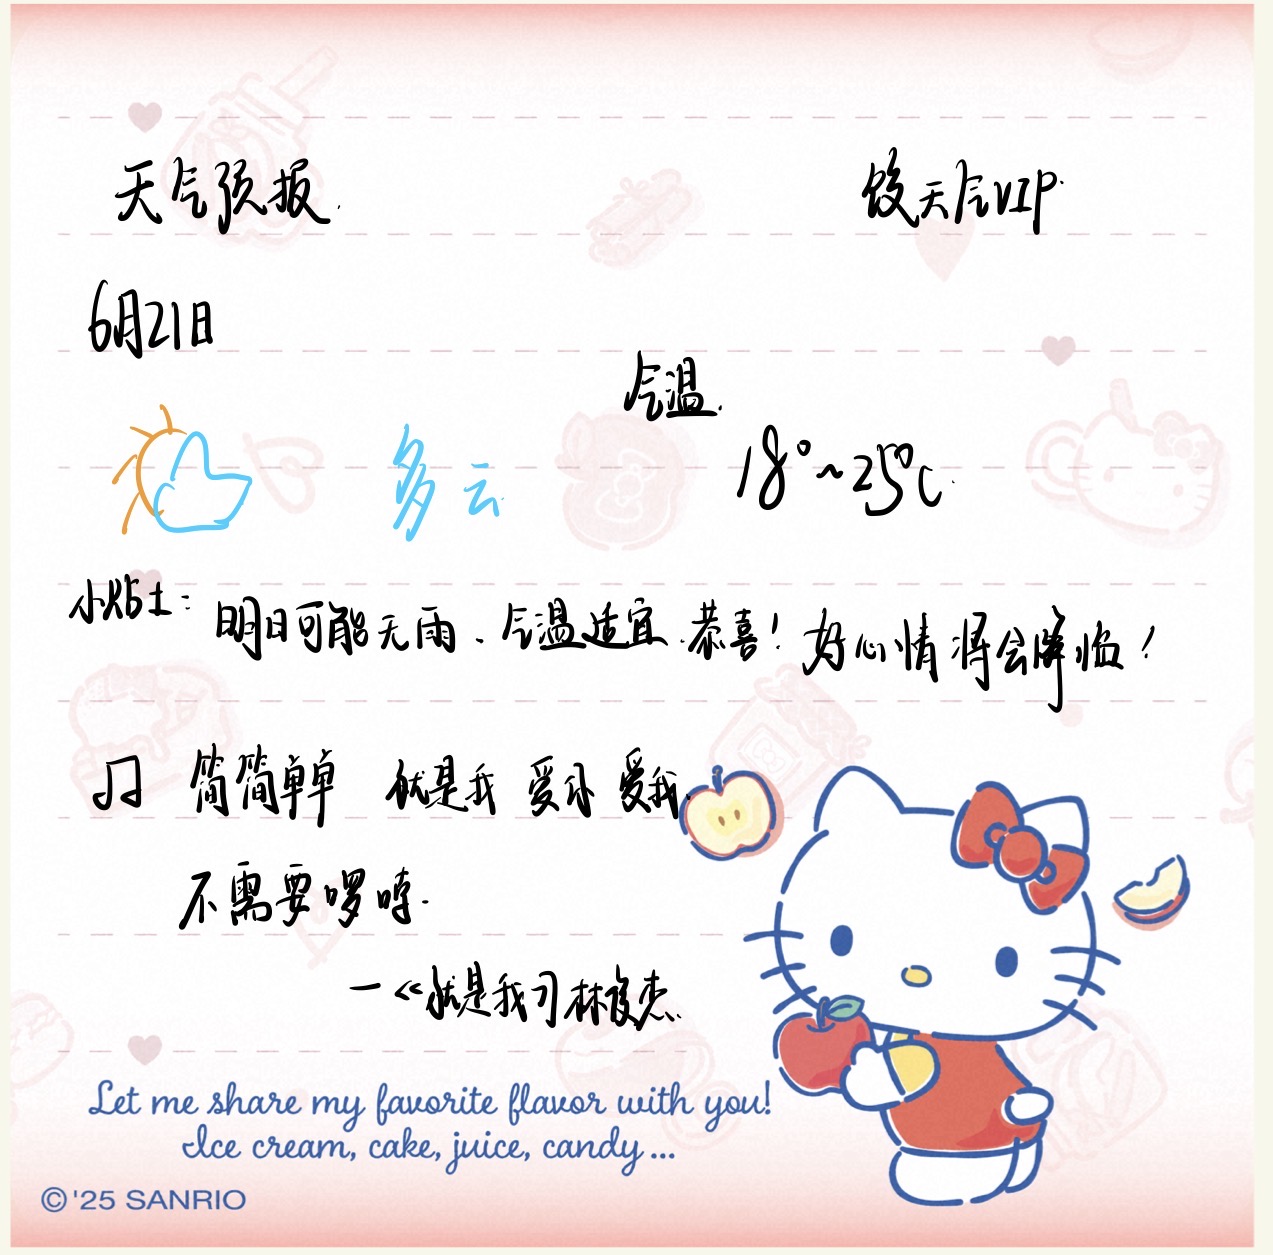 天气预报.
天气VIP.
6月21日
气温.
多云
18°~25℃.
小贴士: 明日可能无雨、气温适宜.恭喜! 好心情将会降临!
♫ 简简单单 就是我 爱你 爱我.
不需要啰嗦.
—《就是我》林俊杰.
Let me share my favorite flavor with you!
Ice cream, cake, juice, candy...
© '25 SANRIO